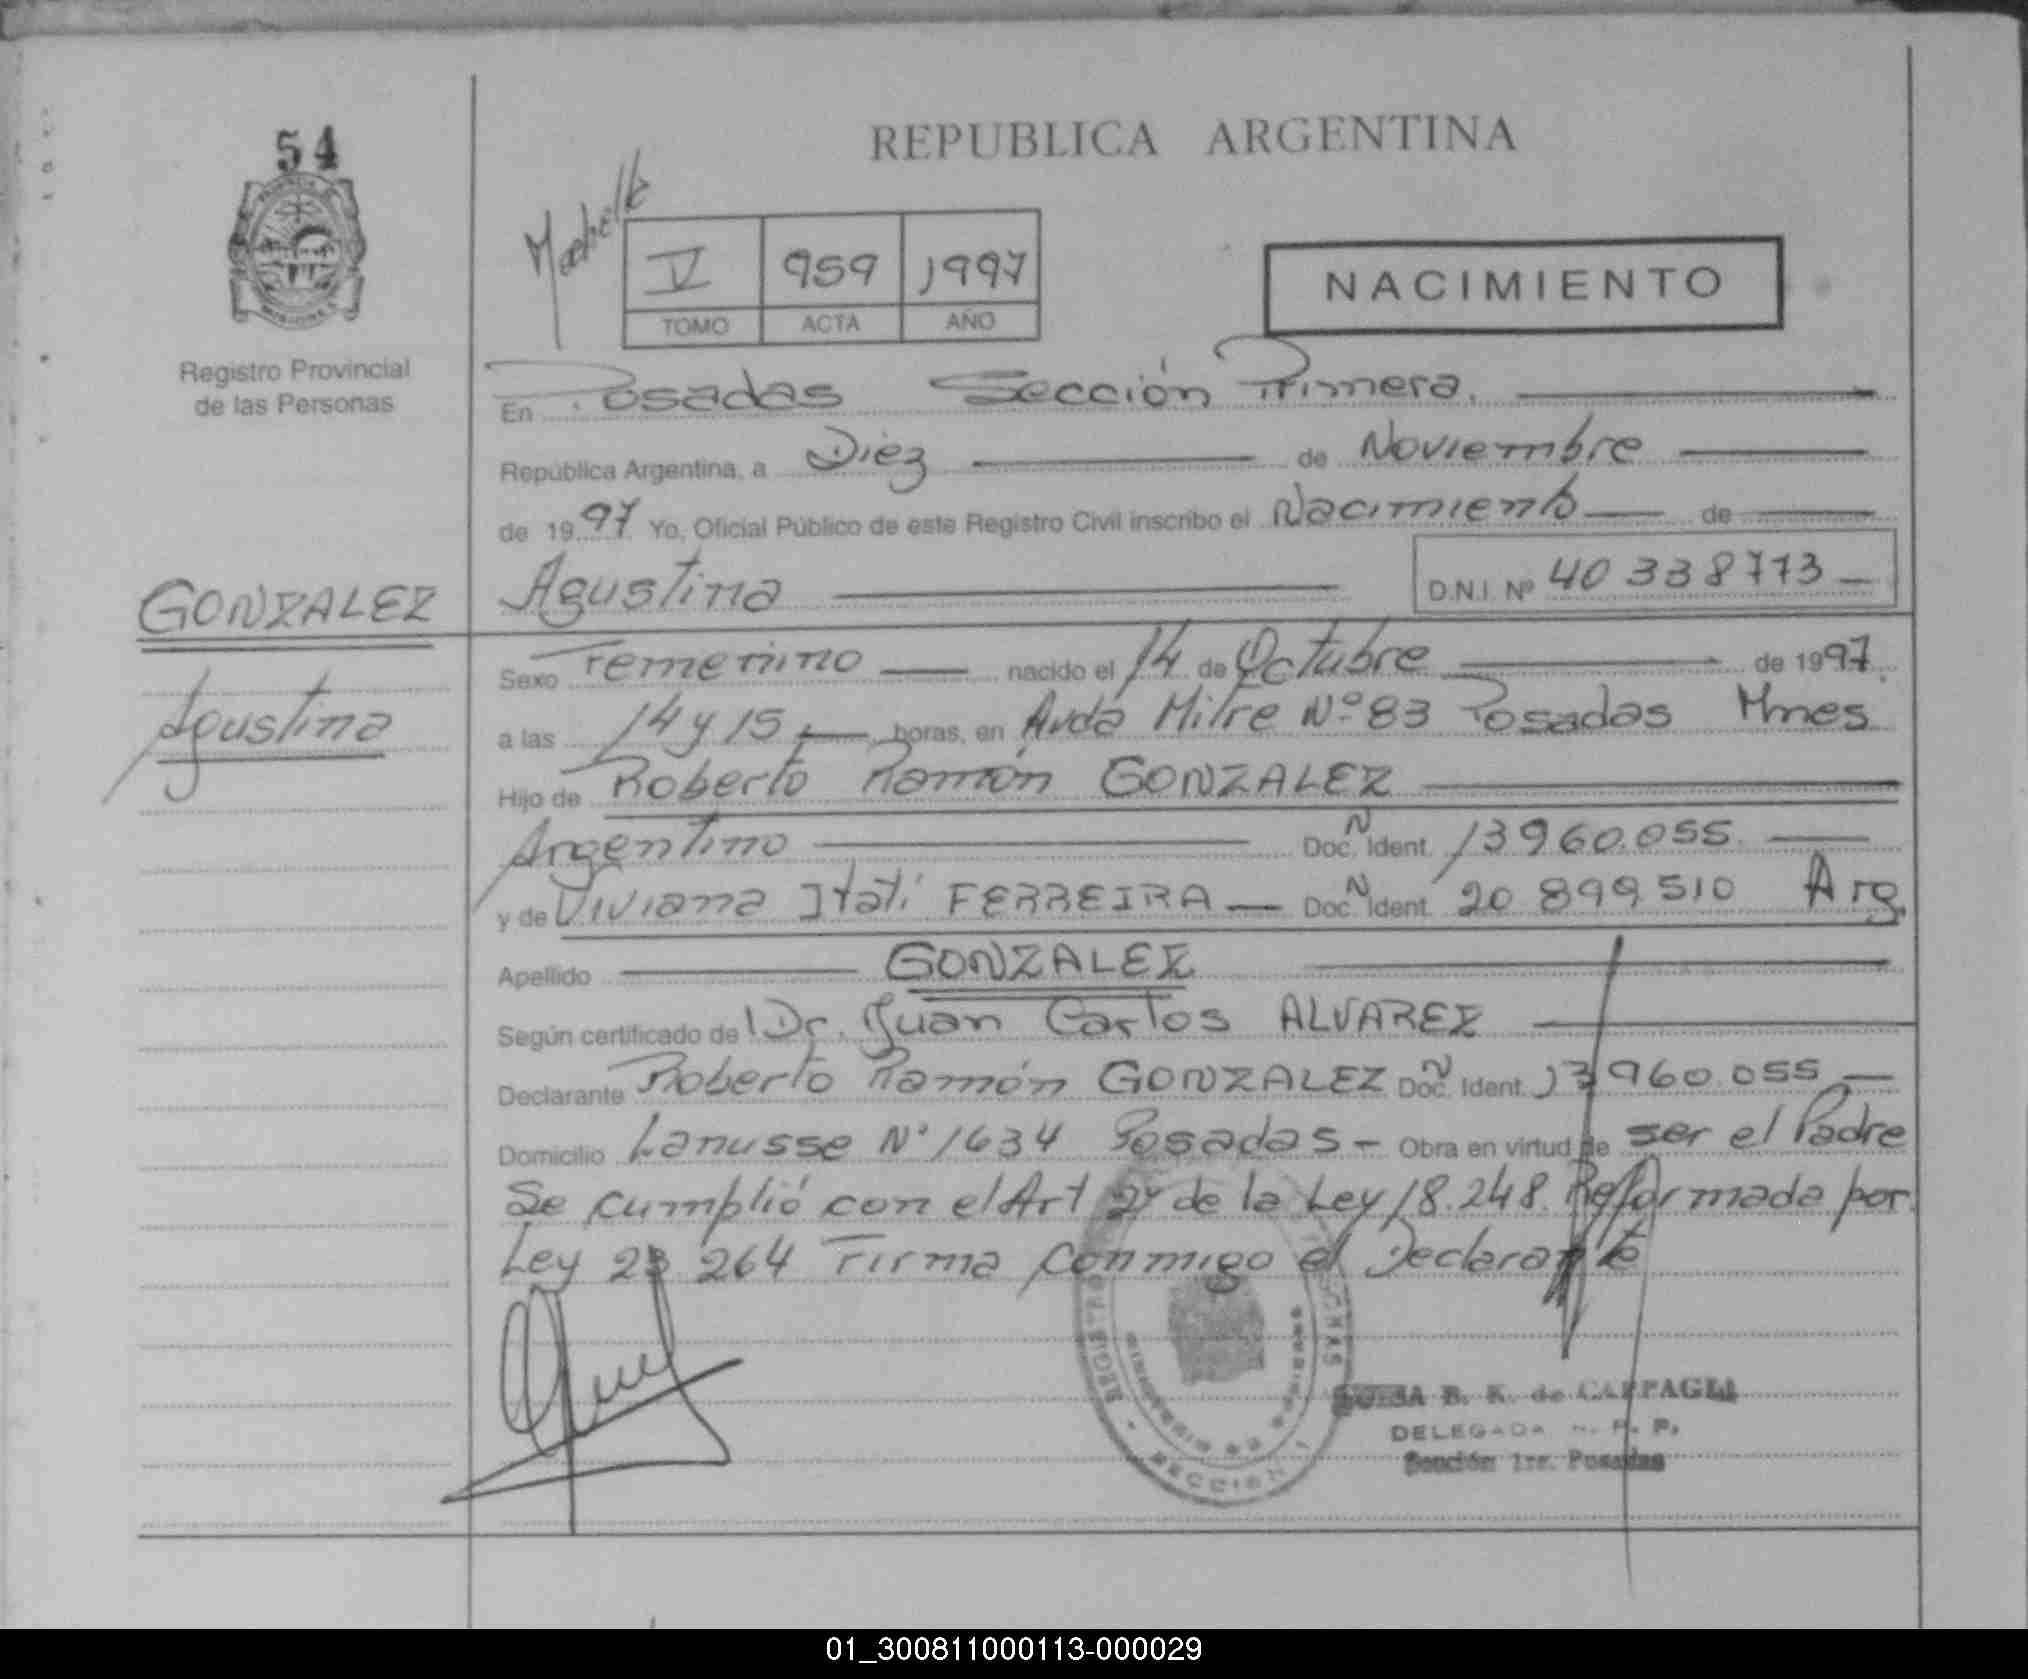 54
REPUBLICA ARGENTINA
V 959 1997
TOMO ACTA AÑO
NACIMIENTO
Registro Provincial
de las Personas
En Posadas Sección Primera.
República Argentina, a Diez de Noviembre
de 1997 Yo, Oficial Público de este Registro Civil inscribo el Nacimiento de
GONZALEZ
Agustina
Agustina D.N.I. Nº 40 338713
Sexo Femenino nacido el 14 de Octubre de 1997.
a las 14 y 15 horas, en Avda Mitre Nº 83 Posadas Mnes
Hijo de Roberto Ramón GONZALEZ
Argentino Doc. Ñ Ident. 13960.055.
y de Viviana Itatí FERREIRA Doc. Ñ Ident. 20 899510 Arg.
Apellido GONZALEZ
Según certificado de Dr. Juan Carlos ALVAREZ
Declarante Roberto Ramón GONZALEZ Doc. Ñ Ident. 13960.055
Domicilio Lanusse Nº 1634 Posadas - Obra en virtud de ser el Padre
Se cumplió con el Art 2º de la Ley 18.248. Reformada por
Ley 23 264 Firma conmigo el Declarante
B. K. de CAPPAGLI
DELEGADA R. P. P.
Sección 1ra. Posadas
01_300811000113-000029